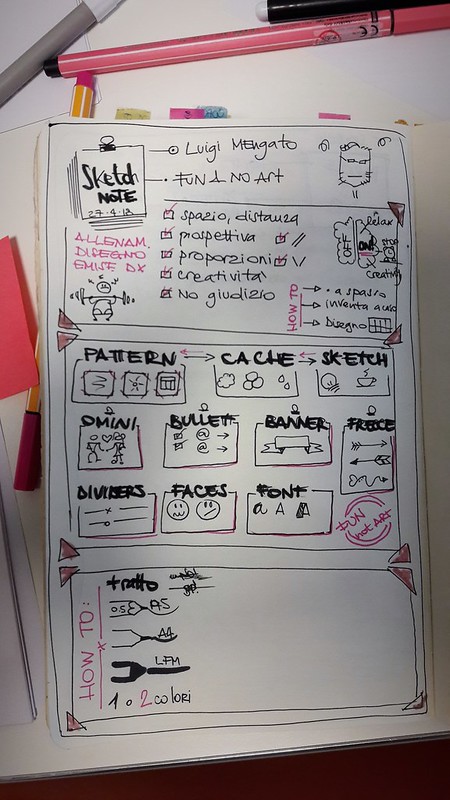 Sketch
NOTE
27.4.18
Luigi Mengato
FUN & NO ART
ALLENAM.
DISEGNO
EMISF DX
spazio, distanza
prospettiva
//
proporzioni
\/
creatività
NO giudizio
OFF
relax
ON
STOP
creatività
HOW TO
a spasio
inventa a caso
Disegno
PATTERN
CACHE
SKETCH
OMINI
BULLETT
@
@
BANNER
FRECCE
DIVIDERS
FACES
FONT
a A A
FUN
not ART
HOW TO:
tratto
0.5
A5
A4
1 o 2 colori